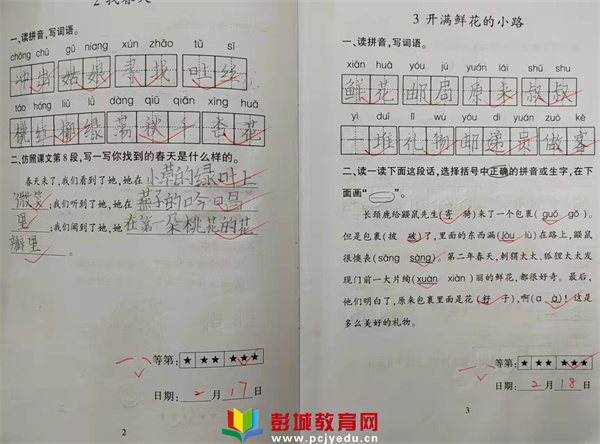 2 找春天
一、读拼音,写词语。
chōng chū gū niang xún zhǎo tǔ sī
冲出 姑娘 寻找 吐丝
táo hóng liǔ lǜ dàng qiū qiān xìng huā
桃红 柳绿 荡秋千 杏花
二、仿照课文第8段,写一写你找到的春天是什么样的。
春天来了,我们看到了她,她在小草的绿叶上
微笑;我们听到了她,她在燕子的吟唱
里;我们闻到了她,她在第一朵桃花的花
瓣里。
等第: ★ ★★ ★★★
日期: 2 月 17 日
2
3 开满鲜花的小路
一、读拼音,写词语。
xiān huā yóu jú yuán lái shū shu
鲜花 邮局 原来 叔叔
yì duī lǐ wù yóu dì yuán zuò kè
一堆 礼物 邮递员 做客
二、读一读下面这段话,选择括号中正确的拼音或生字,在下
面画“ ”。
长颈鹿给鼹鼠先生(寄 骑)来了一个包裹(guǒ gǒ)。
但是包裹(披 破)了,里面的东西漏(lòu lù)在路上,鼹鼠
很懊丧(sāng sàng)。第二年春天,刺猬太太、狐狸太太发
现门前一大片绚(xuàn xiàn)丽的鲜花,都很好奇。最后,
他们明白了,原来包裹里面是花(籽 子),啊(ā à)!这是
多么美好的礼物。
等第: ★ ★★ ★★★
日期: 2 月 18 日
3
彭城教育网
www.pcjyedu.cn